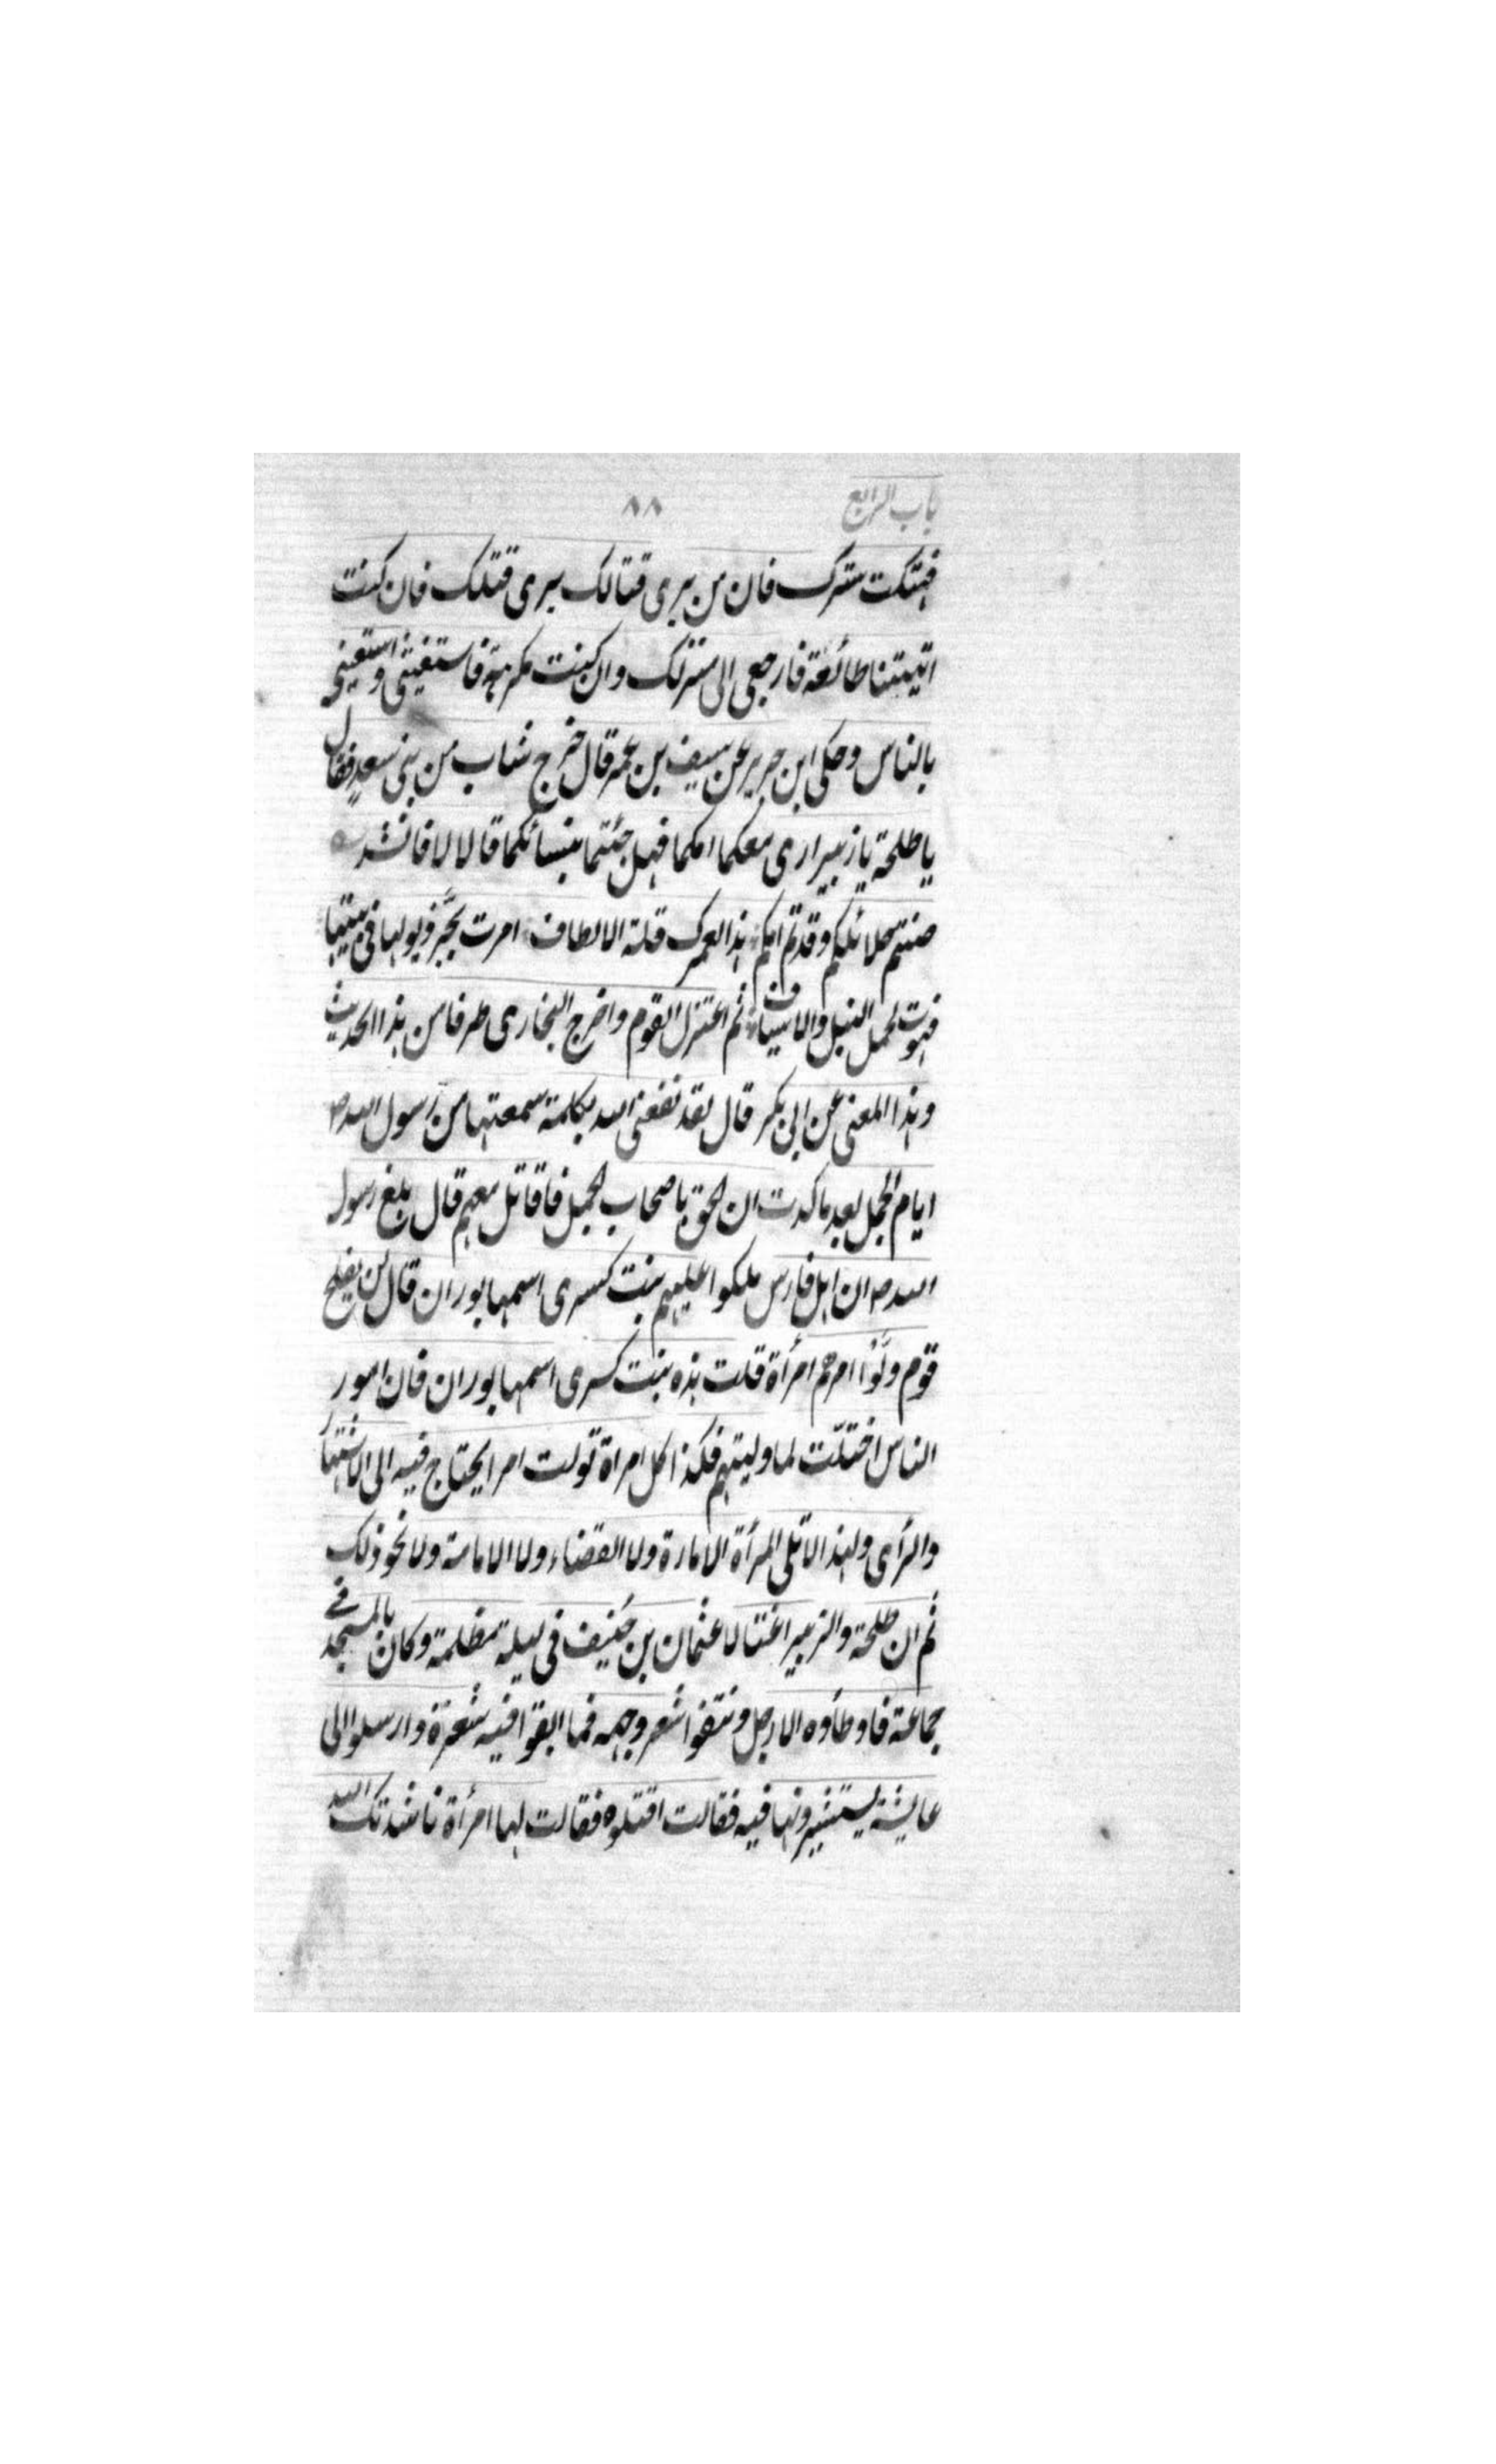 باب الرابع ٨٨
فهتكت سترك فان من يرى قتالك يرى قتلك فان كنت
اتيتنا طائعة فارجعى الى منزلك وان كنت مكرهة فاستغيثى واستعينى
بالناس وحكى ابن جرير عن سيف بن عمر قال خرج شاب من بنى سعد فقال
يا طلحة يا زبير ارى معكما امكما فهل جئتما بنسائكما قالا لا فانشد
صنتم حلائلكم وقدتم امكم هذا لعمرك قلة الانصاف امرت بجر ذيولها فى بيتها
فهوت لحمل النبل والاسياف ثم اعتزل القوم واخرج البخارى طرفا من هذا الحديث
وهذا المعنى عن ابى بكر قال لقد نفعنى الله بكلمة سمعتها من رسول الله ص
ايام الجمل بعد ما كدت ان الحق باصحاب الجمل فاقاتل معهم قال بلغ رسول
الله ص ان اهل فارس ملكوا عليهم بنت كسرى اسمها بوران قال لن يفلح
قوم ولّوا امرهم امرأة قلت هذه بنت كسرى اسمها بوران فان امور
الناس اختلّت لما وليتهم فكذا كل امراة تولت امرا يحتاج فيه الى الاشتهار
والرأى ولهذا لا تلى المرأة الامارة ولا القضاء ولا الامامة ولا نحو ذلك
ثم ان طلحة والزبير اغتالا عثمان بن حُنيف فى ليلة مظلمة وكان بالمسجد فى
جماعة فاوطأوه الارجل ونتفوا شعر وجهه فما ابقوا فيه شعرة وارسلوا الى
عايشة يستشيرونها فيه فقالت اقتلوه فقالت لها امرأة ناشدتك الله